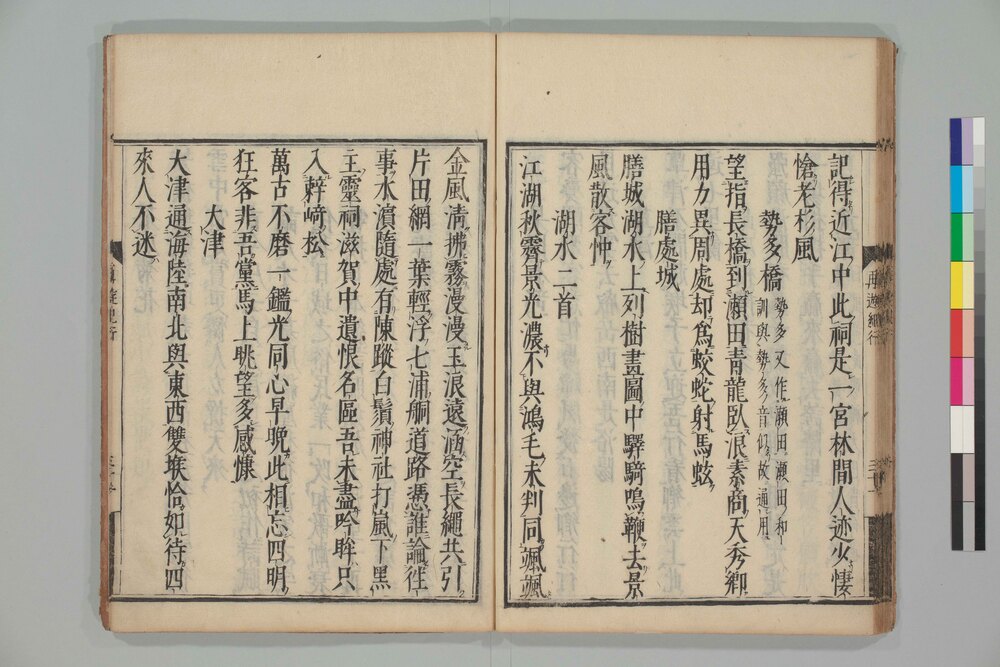 記得近江中此祠是一宮林間人迹少悽
愴老杉風
勢多橋 勢多又作瀬田瀬田和
訓與勢多音似故通用
望指長橋到瀬田青龍臥浪素商天秀卿
用力異周處却為蛟蛇射馬蚿
膳處城
膳城湖水上列樹畫圖中驛騎鳴鞭去景
風散客忡
湖水二首
江湖秋霽景光濃不與鴻毛未判同颯颯
再遊紀行
金風清拂霧漫漫玉浪遠涵空長繩共引
片田網一葉輕浮七浦舼道路憑誰論徃
事水濱隨處有陳蹤白鬚神社打嵐下黑
主靈祠滋賀中遺恨名區吾未盡吟眸只
入辥﨑松
萬古不磨一鑑光同心早晚此相忘四明
狂客非吾黨馬上眺望多感慷
大津
大津通海陸南北與東西雙堠恰如待四
來人不迷